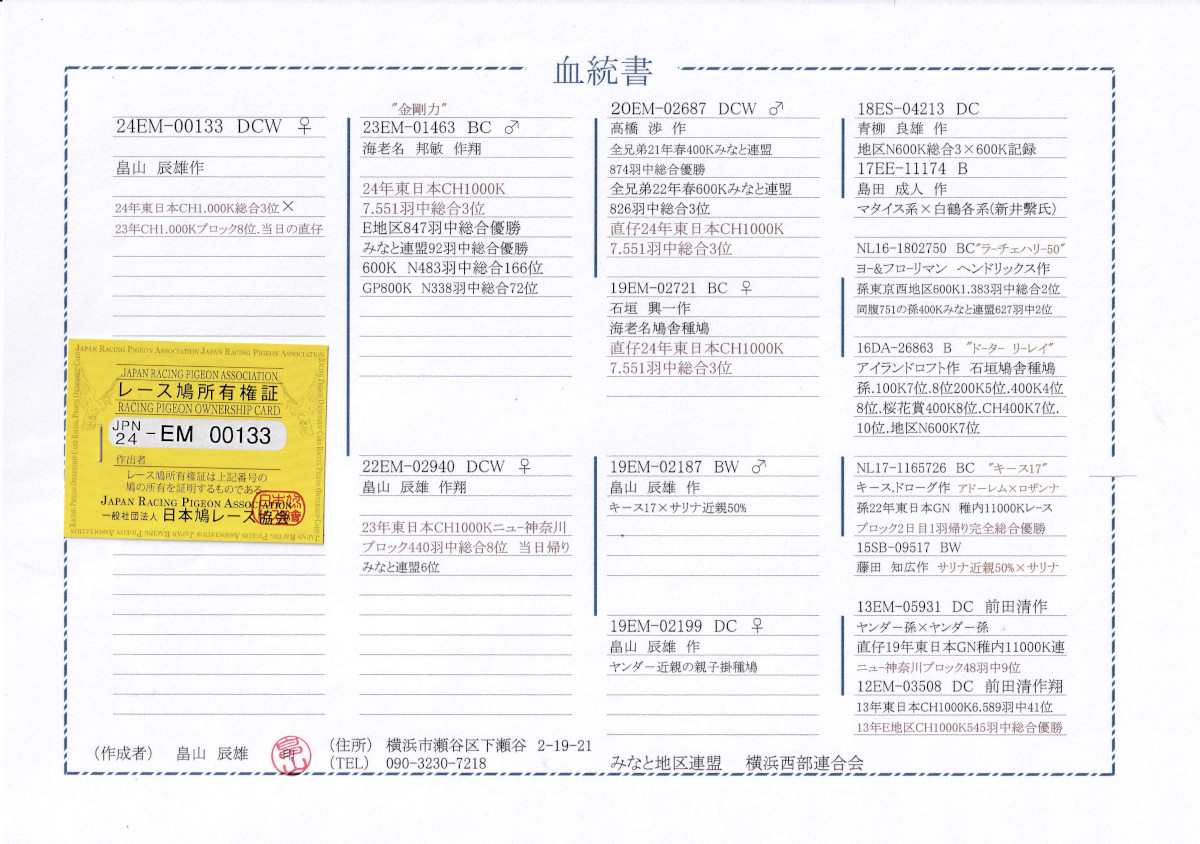 血統書
24EM-00133 DCW ♀
畠山 辰雄作
24年東日本CH1.000K総合3位×
23年CH1.000Kブロック8位.当日の直仔
JAPAN RACING PIGEON ASSOCIATION
レース鳩所有権証
RACING PIGEON OWNERSHIP CARD
JPN
24 -EM 00133
作出者
レース鳩所有権証は上記番号の
鳩の所有を証明するものである
JAPAN RACING PIGEON ASSOCIATION
一般社団法人 日本鳩レース協会
"金剛力"
23EM-01463 BC ♂
海老名 邦敏 作翔
24年東日本CH1000K
7.551羽中総合3位
E地区847羽中総合優勝
みなと連盟92羽中総合優勝
600K N483羽中総合166位
GP800K N338羽中総合72位
22EM-02940 DCW ♀
畠山 辰雄 作翔
23年東日本CH1000Kニュー神奈川
ブロック440羽中総合8位 当日帰り
みなと連盟6位
20EM-02687 DCW ♂
高橋 渉 作
全兄弟21年春400Kみなと連盟
874羽中総合優勝
全兄弟22年春600Kみなと連盟
826羽中総合3位
直仔24年東日本CH1000K
7.551羽中総合3位
19EM-02721 BC ♀
石垣 興一作
海老名鳩舎種鳩
直仔24年東日本CH1000K
7.551羽中総合3位
19EM-02187 BW ♂
畠山 辰雄 作
キース17×サリナ近親50%
19EM-02199 DC ♀
畠山 辰雄 作
ヤンダー近親の親子掛種鳩
18ES-04213 DC
青柳 良雄 作
地区N600K総合3×600K記録
17EE-11174 B
島田 成人 作
マタイス系×白鶴各系(新井繋氏)
NL16-1802750 BC"ラーチェハリー50"
ヨー&フローリマン ヘンドリックス作
孫東京西地区600K1.383羽中総合2位
同腹751の孫400Kみなと連盟627羽中2位
16DA-26863 B "ドーター リーレイ"
アイランドロフト作 石垣鳩舎種鳩
孫.100K7位.8位200K5位.400K4位
8位.桜花賞400K8位.CH400K7位.
10位.地区N600K7位
NL17-1165726 BC "キース17"
キース.ドローグ作 アドーレム×ロザンナ
孫22年東日本GN 稚内11000Kレース
ブロック2日目1羽帰り完全総合優勝
15SB-09517 BW
藤田 知広作 サリナ近親50%×サリナ
13EM-05931 DC 前田清作
ヤンダー孫×ヤンダー孫
直仔19年東日本GN稚内11000K連
ニュー神奈川ブロック48羽中9位
12EM-03508 DC 前田清作翔
13年東日本CH1000K6.589羽中41位
13年E地区CH1000K545羽中総合優勝
(作成者) 畠山 辰雄
(住所) 横浜市瀬谷区下瀬谷 2-19-21
(TEL) 090-3230-7218
みなと地区連盟 横浜西部連合会